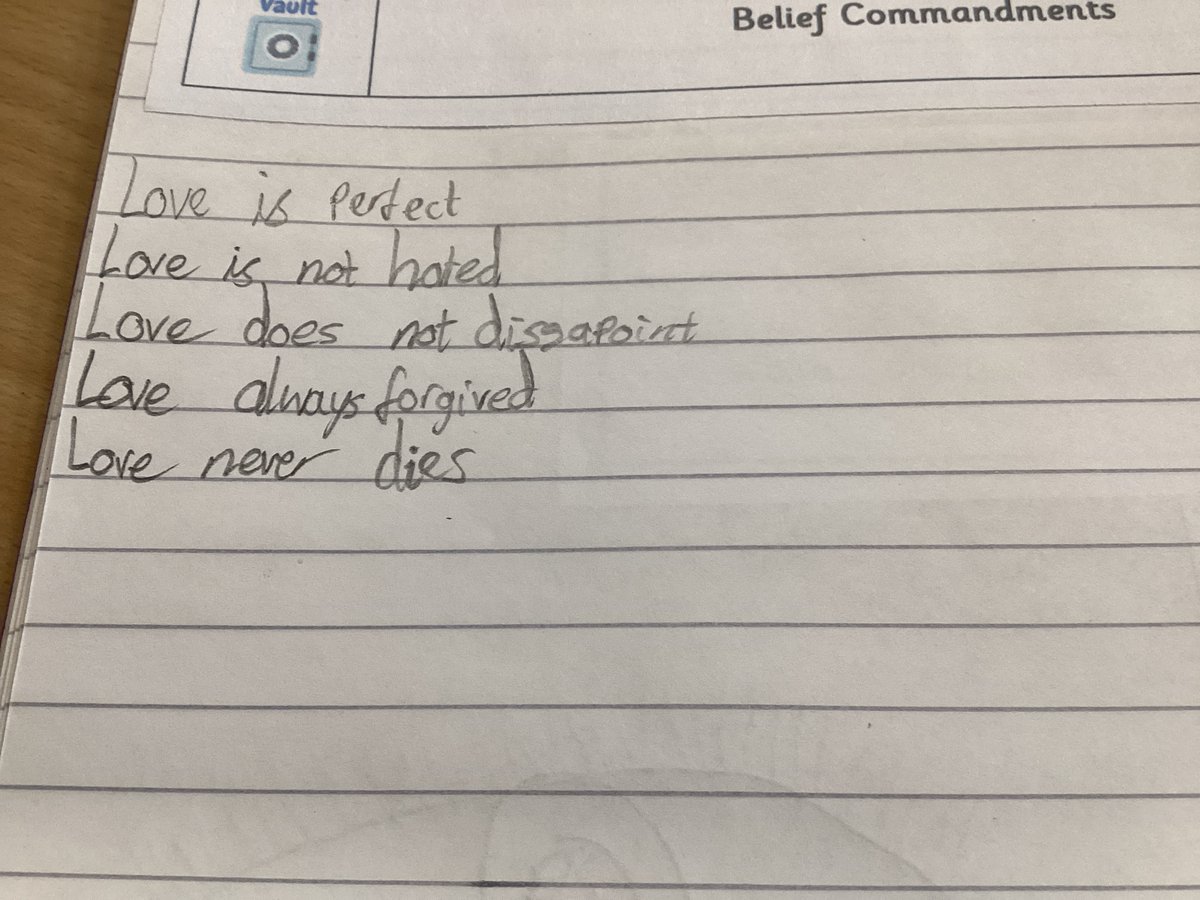 Vault
Belief Commandments
Love is perfect
Love is not hated
Love does not dissapoint
Love always forgived
Love never dies